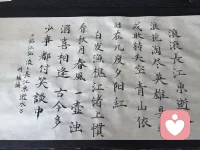 滾滾長江東逝水
浪花淘盡英雄是非
成敗轉頭空青山依
舊在几度夕陽紅
白发漁樵江渚上慣
看秋月春風一壶濁
酒喜相逢古今多
少事都付笑談中